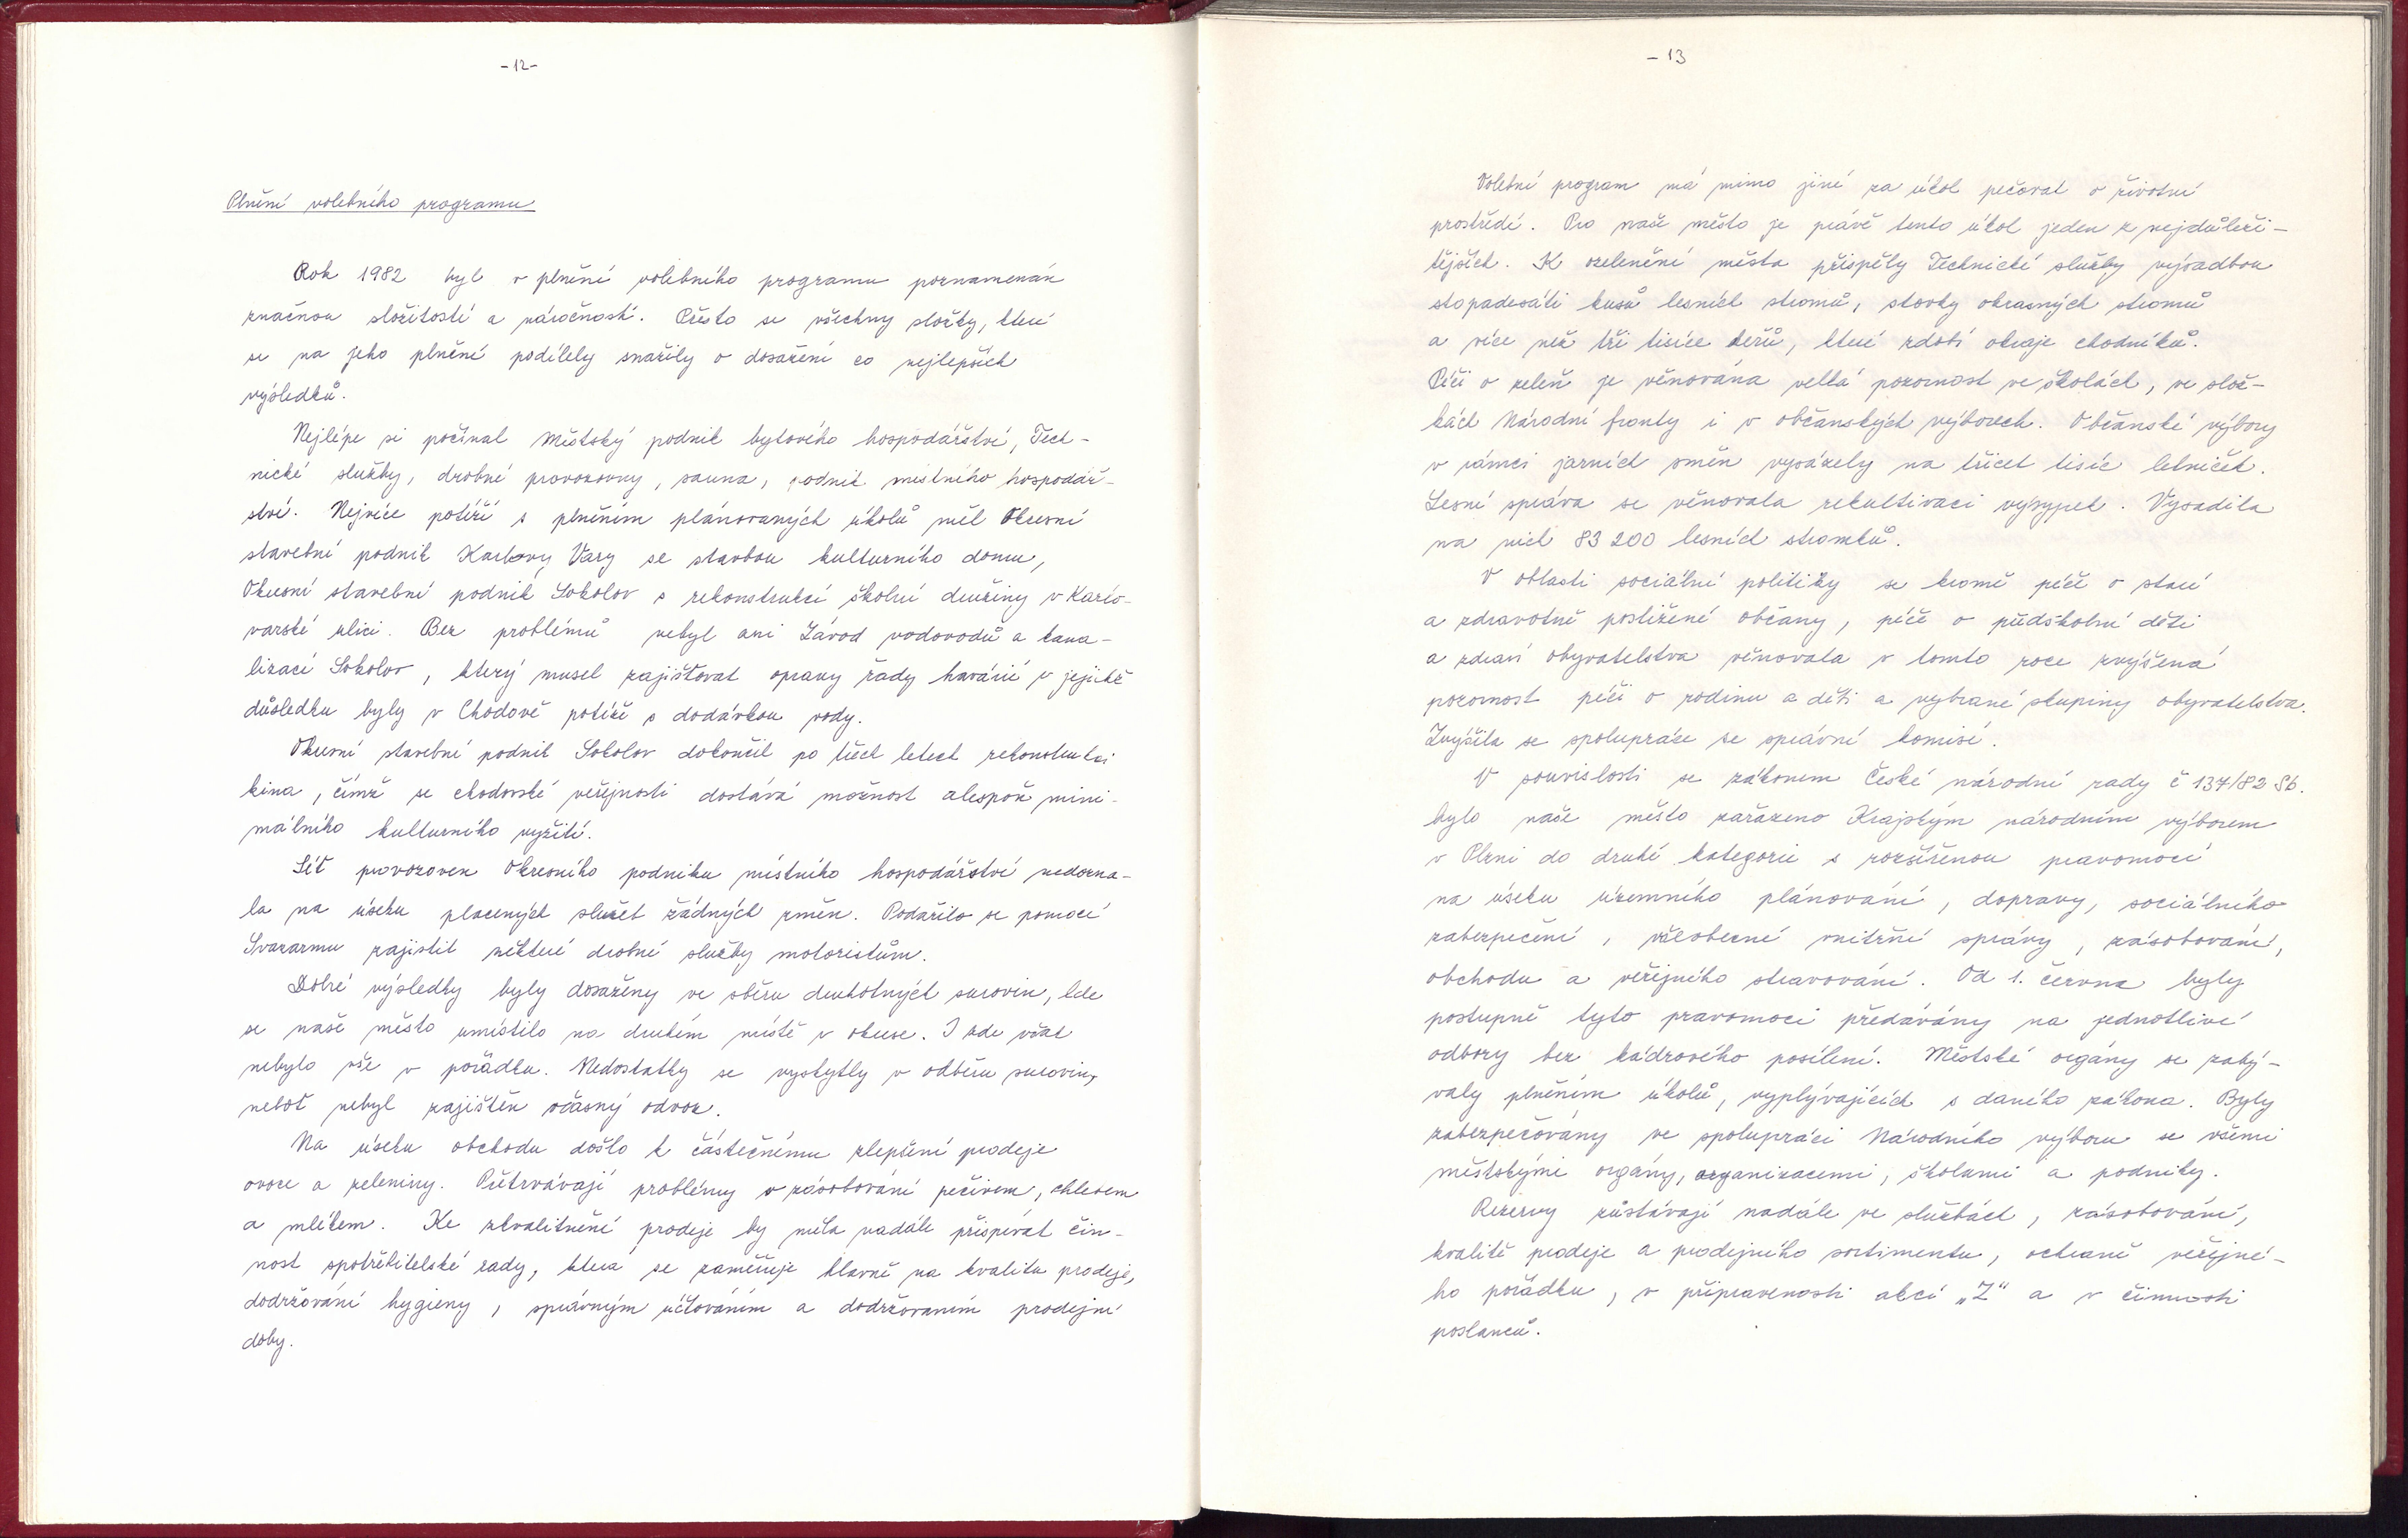 -12-
Plnění volebního programu
Rok 1982 byl v plnění volebního programu poznamenán
značnou složitostí a náročností. Přesto se všechny složky, které
se na jeho plnění podílely snažily o dosažení co nejlepších
výsledků.
Nejlépe si počínal Městský podnik bytového hospodářství, Tech-
nické služby, drobné provozovny, sauna, podnik místního hospodář-
ství. Nejvíce potíží s plněním plánovaných úkolů měl Okresní
stavební podnik Karlovy Vary se stavbou kulturního domu,
Okresní stavební podnik Sokolov s rekonstrukcí školní družiny v Karlo-
varské ulici. Bez problémů nebyl ani Závod vodovodů a kana-
lizací Sokolov, který musel zajišťovat opravy řady havárií v jejichž
důsledku byly v Chodově potíže s dodávkou vody.
Okresní stavební podnik Sokolov dokončil po třech letech rekonstrukci
kina, čímž se chodovské veřejnosti dostává možnost alespoň mini-
málního kulturního vyžití.
Síť provozoven Okresního podniku místního hospodářství nedozna-
la na úseku placených služeb žádných změn. Podařilo se pomocí
Svazarmu zajistit některé drobné služby motoristům.
Dobré výsledky byly dosaženy ve sběru druhotných surovin, kde
se naše město umístilo na druhém místě v okrese. I zde však
nebylo vše v pořádku. Nedostatky se vyskytly v odběru surovin,
neboť nebyl zajištěn včasný odvoz.
Na úseku obchodu došlo k částečnému zlepšení prodeje
ovoce a zeleniny. Přetrvávají problémy v zásobování pečivem, chlebem
a mlékem. Ke zkvalitnění prodeje by měla nadále přispívat čin-
nost spotřebitelské rady, která se zaměřuje hlavně na kvalitu prodeje,
dodržování hygieny, správným účtováním a dodržovaním prodejní
doby.
- 13
Volební program má mimo jiné za úkol pečovat o životní
prostředí. Pro naše město je právě tento úkol jeden z nejdůleži-
tějších. K ozelenění města přispěly Technické služby výsadbou
stopadesáti kusů lesních stromů, stovky okrasných stromů
a více než tři tisíce keřů, které zdobí okraje chodníků.
Péči o zeleň je věnována velká pozornost ve školách, ve slož-
kách Národní fronty i v občanských výborech. Občanské výbory
v rámci jarních směn vysázely na třicet tisíc letniček.
Lesní správa se věnovala rekultivaci výsypek. Vysadila
na nich 83 200 lesních stromků.
V oblasti sociální politiky se kromě péče o staré
a zdravotně postižené občany, péče o předškolní děti
a zdraví obyvatelstva věnovala v tomto roce zvýšená
pozornost péči o rodinu a děti a vybrané skupiny obyvatelstva.
Zvýšila se spolupráce se správní komisí.
V souvislosti se zákonem České národní rady č 137/82 Sb.
bylo naše město zařazeno Krajským národním výborem
v Plzni do druhé kategorie s rozšířenou pravomocí
na úseku územního plánování, dopravy, sociálního
zabezpečení, všeobecné vnitřní správy, zásobování,
obchodu a veřejného stravování. Od 1. června byly
postupně tyto pravomoci předávány na jednotlivé
odbory bez kádrového posílení. Městské orgány se zabý-
valy plněním úkolů, vyplývajících s daného zákona. Byly
zabezpečovány ve spolupráci Národního výboru se všemi
městskými orgány, organizacemi, školami a podniky.
Rezervy zůstávají nadále ve službách, zásobování,
kvalitě prodeje a prodejního sortimentu, ochraně veřejné-
ho pořádku, v připravenosti akcí „Z" a v činnosti
poslanců.